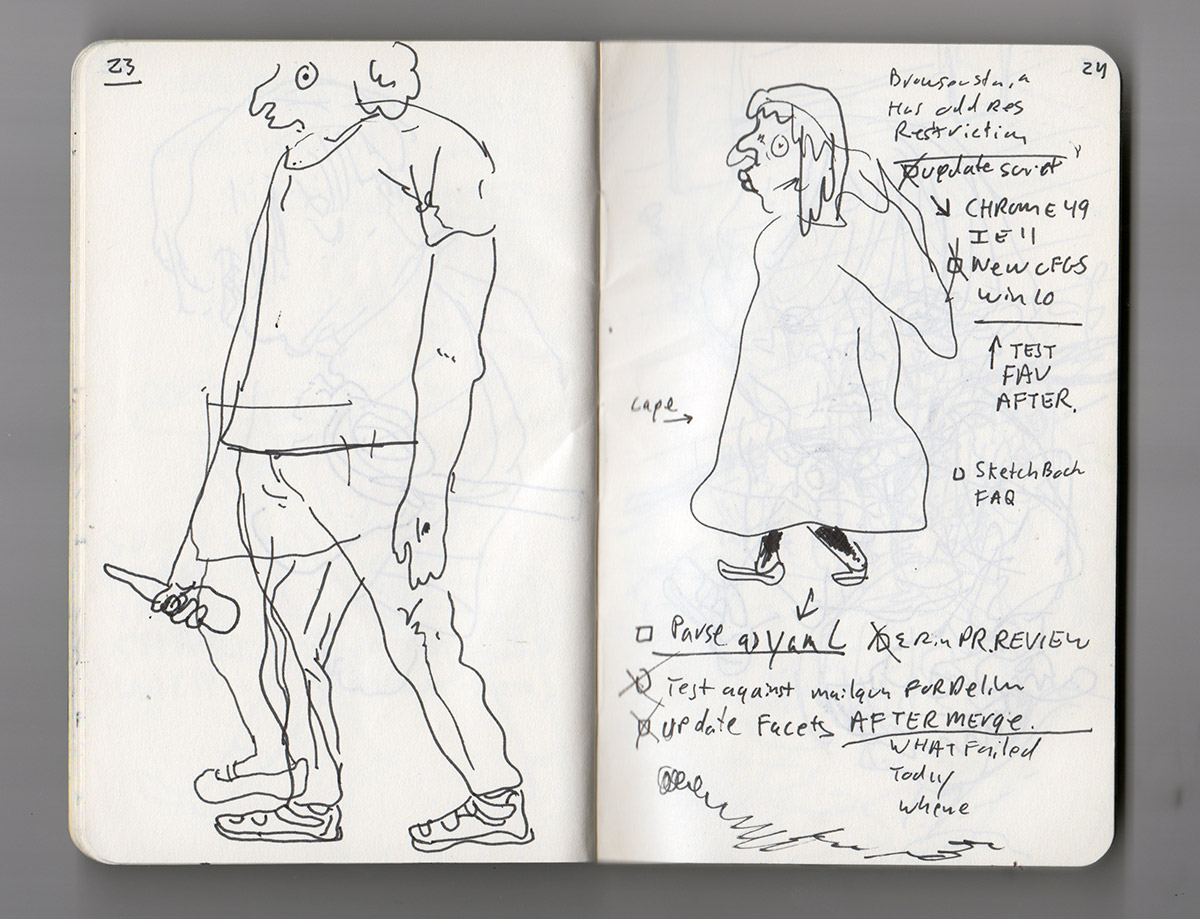 23
24
Has odd Res
Restriction
update script
CHROME 49
IE 11
New CFGS
Win 10
TEST
FAV
AFTER.
cape
SketchBook
FAQ
Parse as Yaml
Erin PR. REVIEW
Test against mailgun FOR Delim
update Facets AFTER merge.
WHAT Failed
Today
where